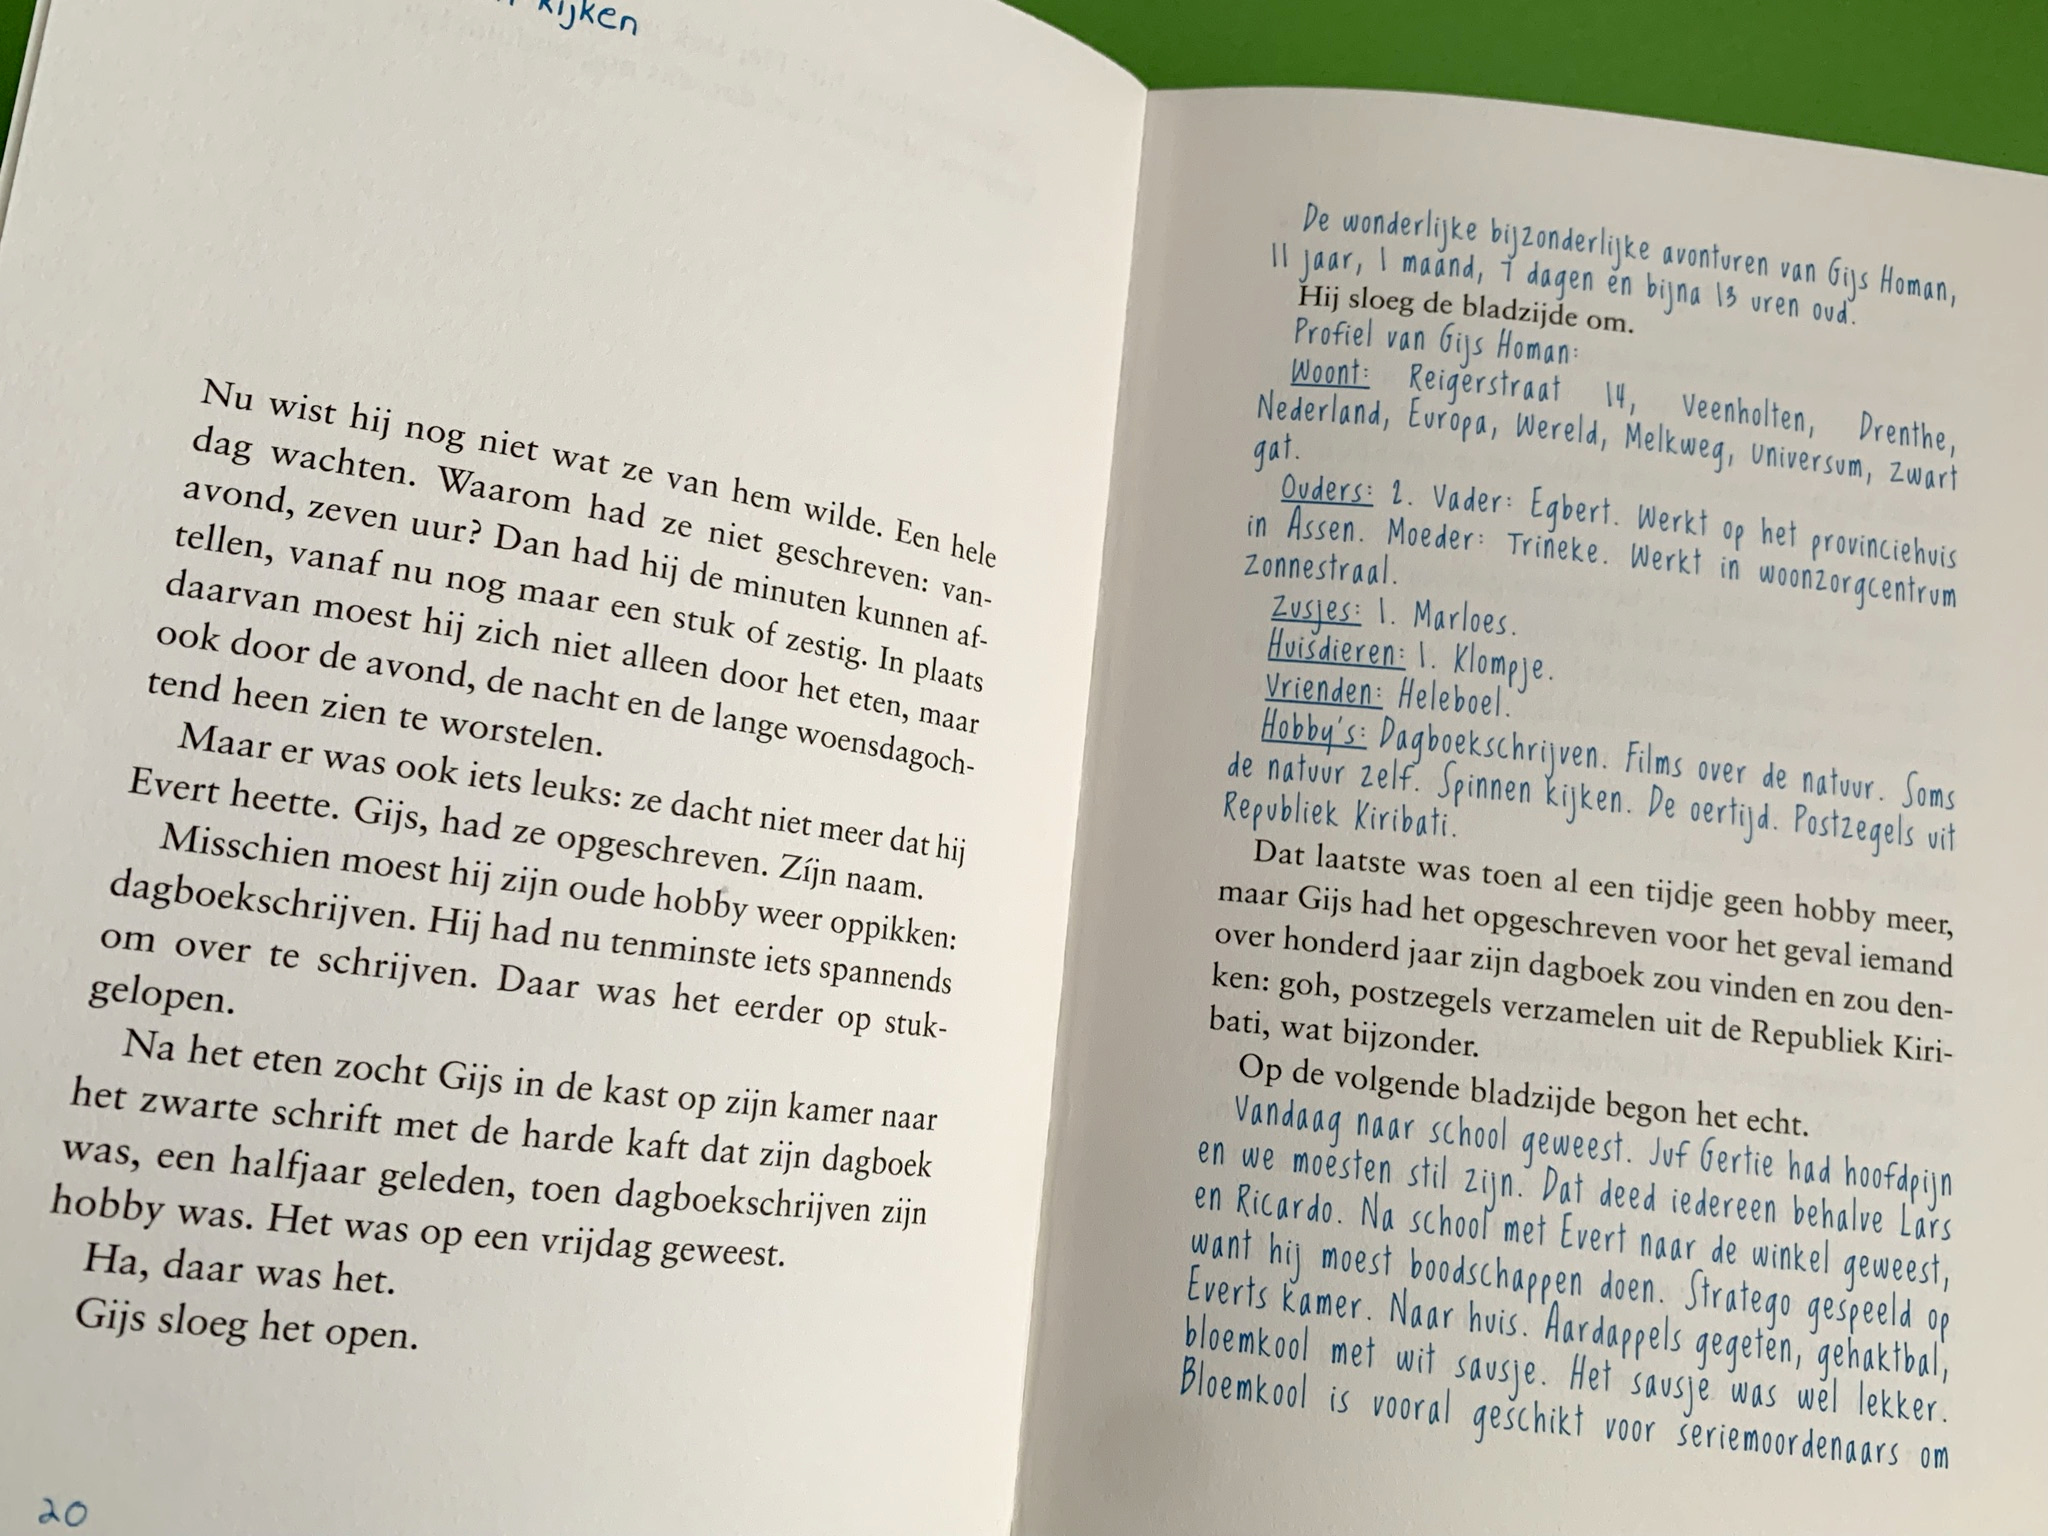 kijken
Nu wist hij nog niet wat ze van hem wilde. Een hele
dag wachten. Waarom had ze niet geschreven: van-
avond, zeven uur? Dan had hij de minuten kunnen af-
tellen, vanaf nu nog maar een stuk of zestig. In plaats
daarvan moest hij zich niet alleen door het eten, maar
ook door de avond, de nacht en de lange woensdagoch-
tend heen zien te worstelen.
Maar er was ook iets leuks: ze dacht niet meer dat hij
Evert heette. Gijs, had ze opgeschreven. Zíjn naam.
Misschien moest hij zijn oude hobby weer oppikken:
dagboekschrijven. Hij had nu tenminste iets spannends
om over te schrijven. Daar was het eerder op stuk-
gelopen.
Na het eten zocht Gijs in de kast op zijn kamer naar
het zwarte schrift met de harde kaft dat zijn dagboek
was, een halfjaar geleden, toen dagboekschrijven zijn
hobby was. Het was op een vrijdag geweest.
Ha, daar was het.
Gijs sloeg het open.
20
De wonderlijke bijzonderlijke avonturen van Gijs Homan,
11 jaar, 1 maand, 7 dagen en bijna 13 uren oud.
Hij sloeg de bladzijde om.
Profiel van Gijs Homan:
Woont: Reigerstraat 14, Veenholten, Drenthe,
Nederland, Europa, Wereld, Melkweg, Universum, Zwart
gat.
Ouders: 2. Vader: Egbert. Werkt op het provinciehuis
in Assen. Moeder: Trineke. Werkt in woonzorgcentrum
Zonnestraal.
Zusjes: 1. Marloes.
Huisdieren: 1. Klompje.
Vrienden: Heleboel.
Hobby's: Dagboekschrijven. Films over de natuur. Soms
de natuur zelf. Spinnen kijken. De oertijd. Postzegels uit
Republiek Kiribati.
Dat laatste was toen al een tijdje geen hobby meer,
maar Gijs had het opgeschreven voor het geval iemand
over honderd jaar zijn dagboek zou vinden en zou den-
ken: goh, postzegels verzamelen uit de Republiek Kiri-
bati, wat bijzonder.
Op de volgende bladzijde begon het echt.
Vandaag naar school geweest. Juf Gertie had hoofdpijn
en we moesten stil zijn. Dat deed iedereen behalve Lars
en Ricardo. Na school met Evert naar de winkel geweest,
want hij moest boodschappen doen. Stratego gespeeld op
Everts kamer. Naar huis. Aardappels gegeten, gehaktbal,
bloemkool met wit sausje. Het sausje was wel lekker.
Bloemkool is vooral geschikt voor seriemoordenaars om